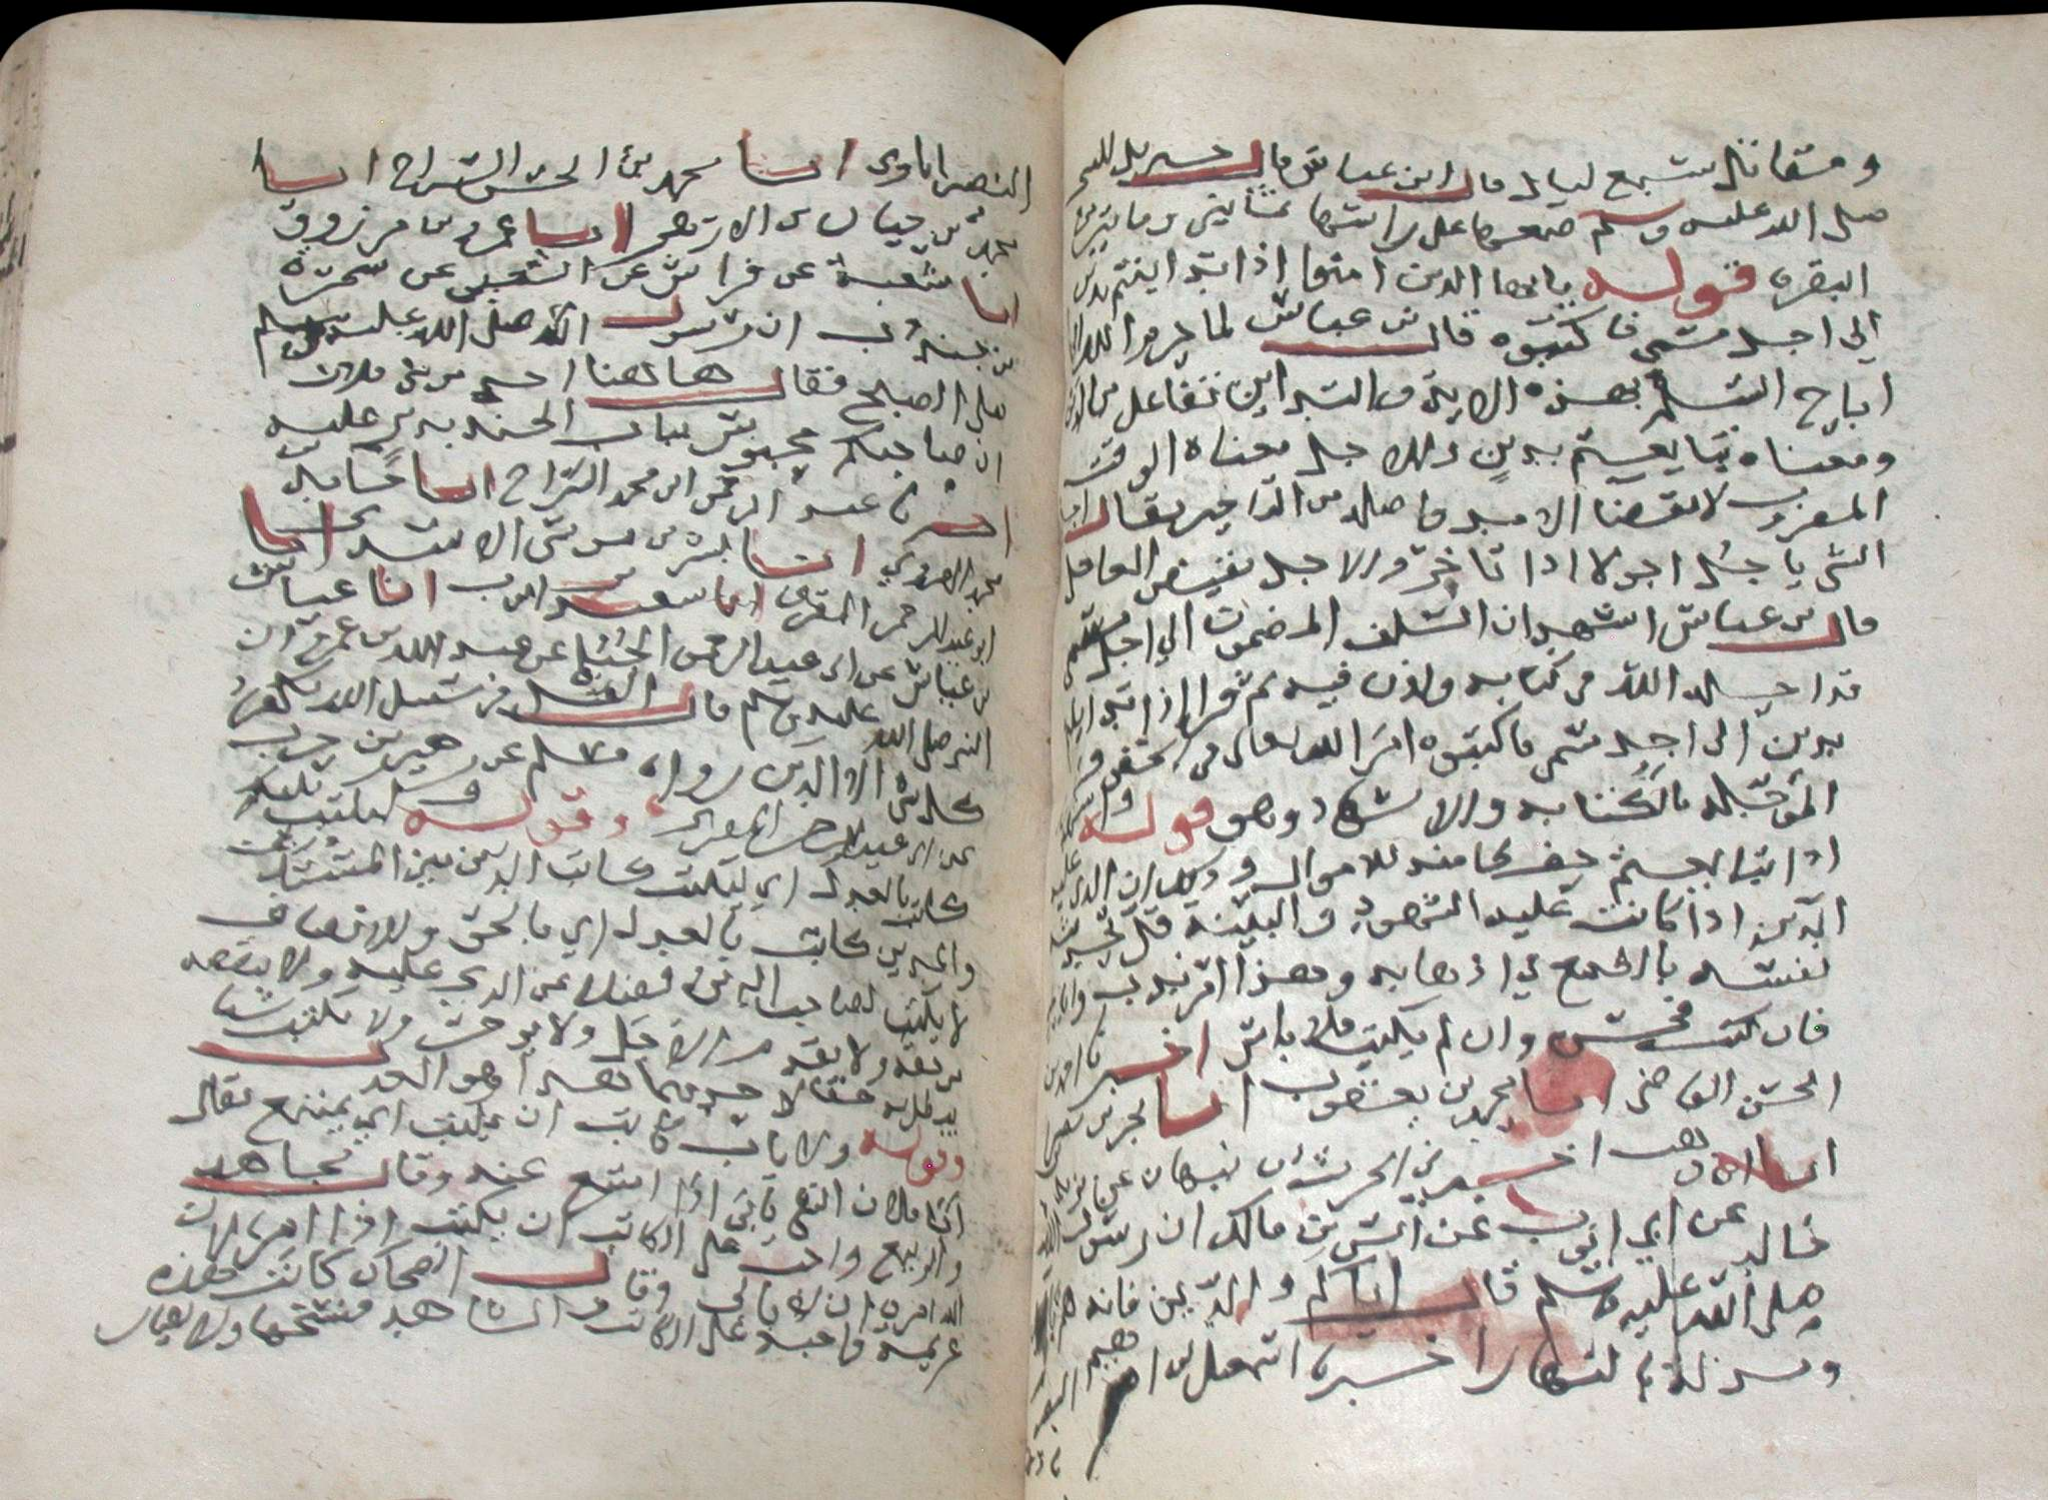 ومقاتل سبع ليال قال ابن عباس قال جبريل للنبي
صلى الله عليه وسلم ضعها على راس مائتين وثمانين من
البقره قوله يا ايها الذين امنوا اذا تداينتم بدين
الى اجل مسمى فاكتبوه قال بن عباس لما حرم الله الربا
اباح السلم بهذه الاية والتداين تفاعل من الدين
ومعناه تبايعتم بدين والاجل معناه الوقت
المضروب لانقضا الامد واصله من التاخير يقال اجل
الشي ياجل اجولا اذا تاخر والاجل نقيض العاجل
قال بن عباس اشهد ان السلف المضمون الى اجل مسمى
قد احله الله في كتابه واذن فيه ثم قرا اذا تداينتم
بدين الى اجل مسمى فاكتبوه امر الله تعالى في الحقوق
المؤجلة بالكتابه والاشهاد وهو قوله واشهدوا
اذا تبايعتم حفظا منه للاموال وذلك ان الذي عليه
الدين اذا كانت عليه الشهود والبينة قل تحديث
نفسه بالطمع في اذهابه وهذا امر ندب
فان كتب فحسن وان لم يكتب فلا باس اخبرنا احمد بن
الحسن القاضي انبا محمد بن يعقوب انبا بحر بن نصر
انبا ابن وهب اخبرني الحرث بن نبهان عن
خالد عن ابي ايوب عن انس بن مالك ان رسول الله
صلى الله عليه وسلم قال اياكم والدين فانه هم
ومذلة بالنهار اخبرنا اسمعيل بن ابراهيم
النصراباذي انبا محمد بن الحسن السراج انبا
محمد بن حيان بن الازهر انبا عمرو بن مرزوق
انبا شعبة عن فراس عن الشعبي عن سمرة
بن جندب ان رسول الله صلى الله عليه وسلم
صلى الصبح فقال هاهنا احد من بني فلان
ان صاحبكم محبوس بباب الجنة بدين عليه
اخبرنا عبد الرحمن بن محمد السراج انبا حامد بن
محمد الهروي انبا بشر بن موسى الاسدي انبا
ابو عبد الرحمن المقري انبا سعيد بن ايوب انا عياش
بن عباس عن ابي عبد الرحمن الحبلي عن عبد الله بن عمرو ان
النبي صلى الله عليه وسلم قال القتل في سبيل الله يكفر
كل شي الا الدين رواه مسلم عن زهير بن حرب
عن ابي عبد الرحمن المقري وقوله وليكتب بينكم
كاتب بالعدل اي ليكتب كاتب الدين بين المستدين
والمدين كاتب بالعدل اي بالحق والانصاف
لا يكتب لصاحب الدين فضلا عن الذي عليه ولا ينقصه
من حقه ولا يقدم الاجل ولا يوخره ولا يكتب شيا
يبطل به حقا لاحدهما هذا هو العدل
وقوله ولا ياب كاتب ان يكتب اي يمتنع يقال
ابى فلان الشي يابى اذا امتنع عنه وقال مجاهد
والربيع واجب على الكاتب ان يكتب اذا امر لان
الله امره ان لا يابى وقال الضحاك كانت هذه
عزيمة واجبة على الكاتب والشاهد فنسختها ولا يضار